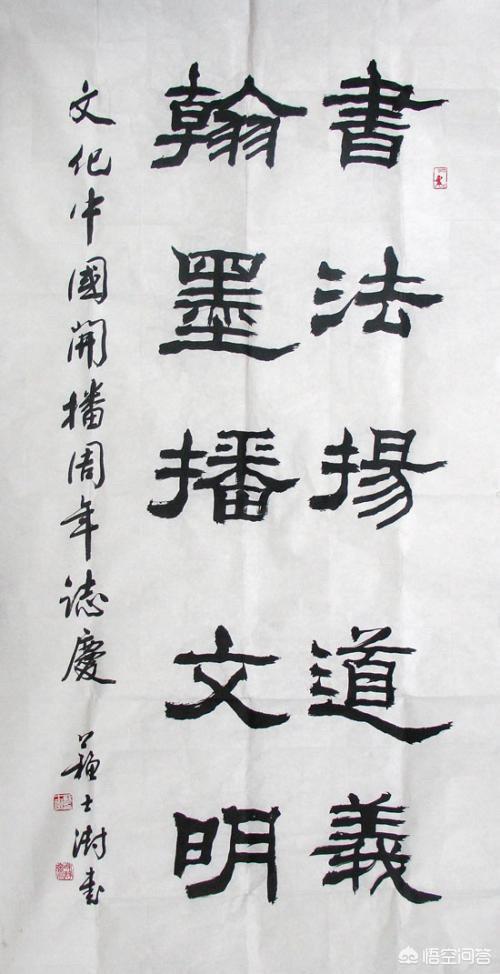 書法揚道義
翰墨播文明
文化中國開播周年誌慶
蘇士澍書
悟空问答